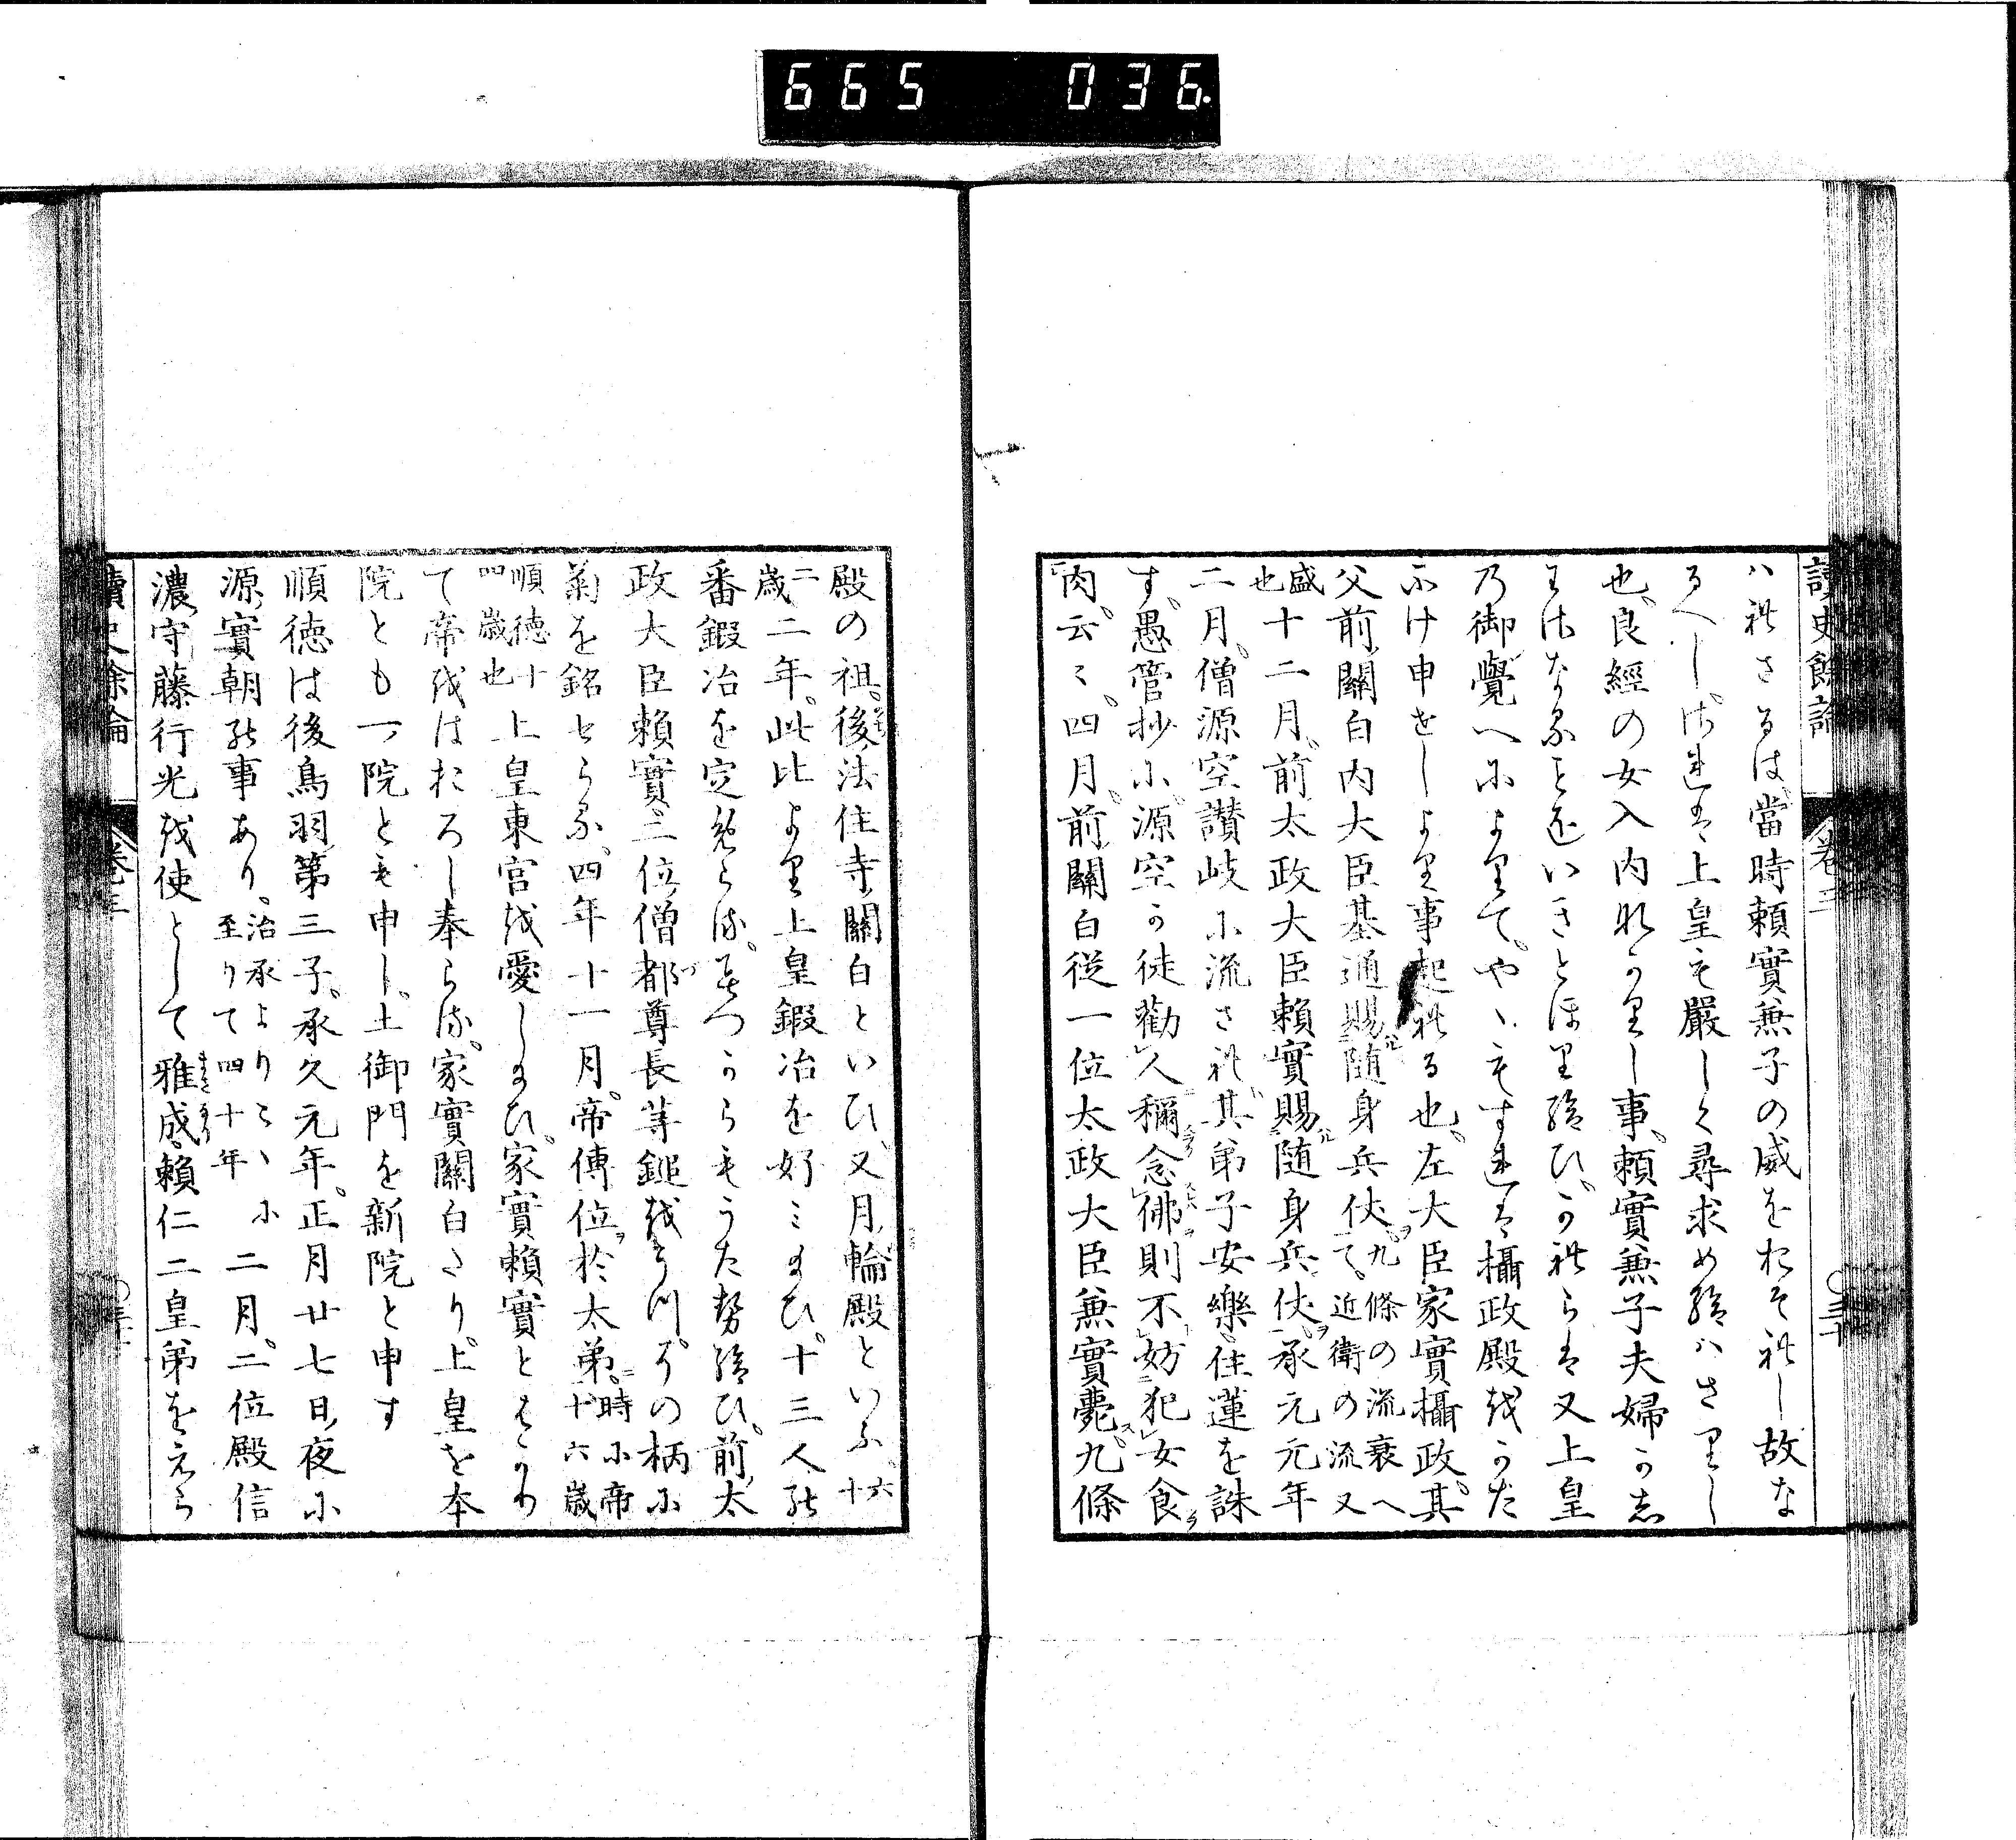 665 036.
讀史餘論 卷二
ハれさるは當時頼實兼子の威をおそれし故な
るへしされは上皇も嚴しく尋求め給ハさりし
也良經の女入内ありし事頼實兼子夫婦かし
わさなるを近いきとほり給ひかれらは又上皇
乃御覺へによりてやゝもすれは攝政殿をかた
ふけ申せしより事起れる也左大臣家實攝政其
父前關白内大臣基通賜随身兵仗九條の流衰へて近衛の流又
盛也十二月前太政大臣頼實賜随身兵仗承元元年
二月僧源空讃岐に流され其弟子安樂住蓮を誅
す愚管抄に源空か徒勸人稱念佛則不妨犯女食
肉云々四月前關白從一位太政大臣兼實薨九條
殿の祖後法住寺關白といひ又月輪殿といふ六十
二歳二年此比より上皇鍛冶を好ミ給ひ十三人の
番鍛冶を定めらるみつからもうた勢給ひ前太
政大臣頼實二位僧都尊長等鎚をうつ其の柄に
菊を銘せらる四年十一月帝傳位於太弟時に帝十六歳
順徳十四歳也上皇東宮を愛し給ひ家實頼實とはかり
て帝をはおろし奉らる家實關白たり上皇を本
院とも一院とも申し土御門を新院と申す
順徳は後鳥羽第三子承久元年正月廿七日夜に
源實朝の事あり治承よりこゝに至りて四十年二月二位殿信
濃守藤行光を使として雅成頼仁二皇弟をえら
讀史餘論 卷二